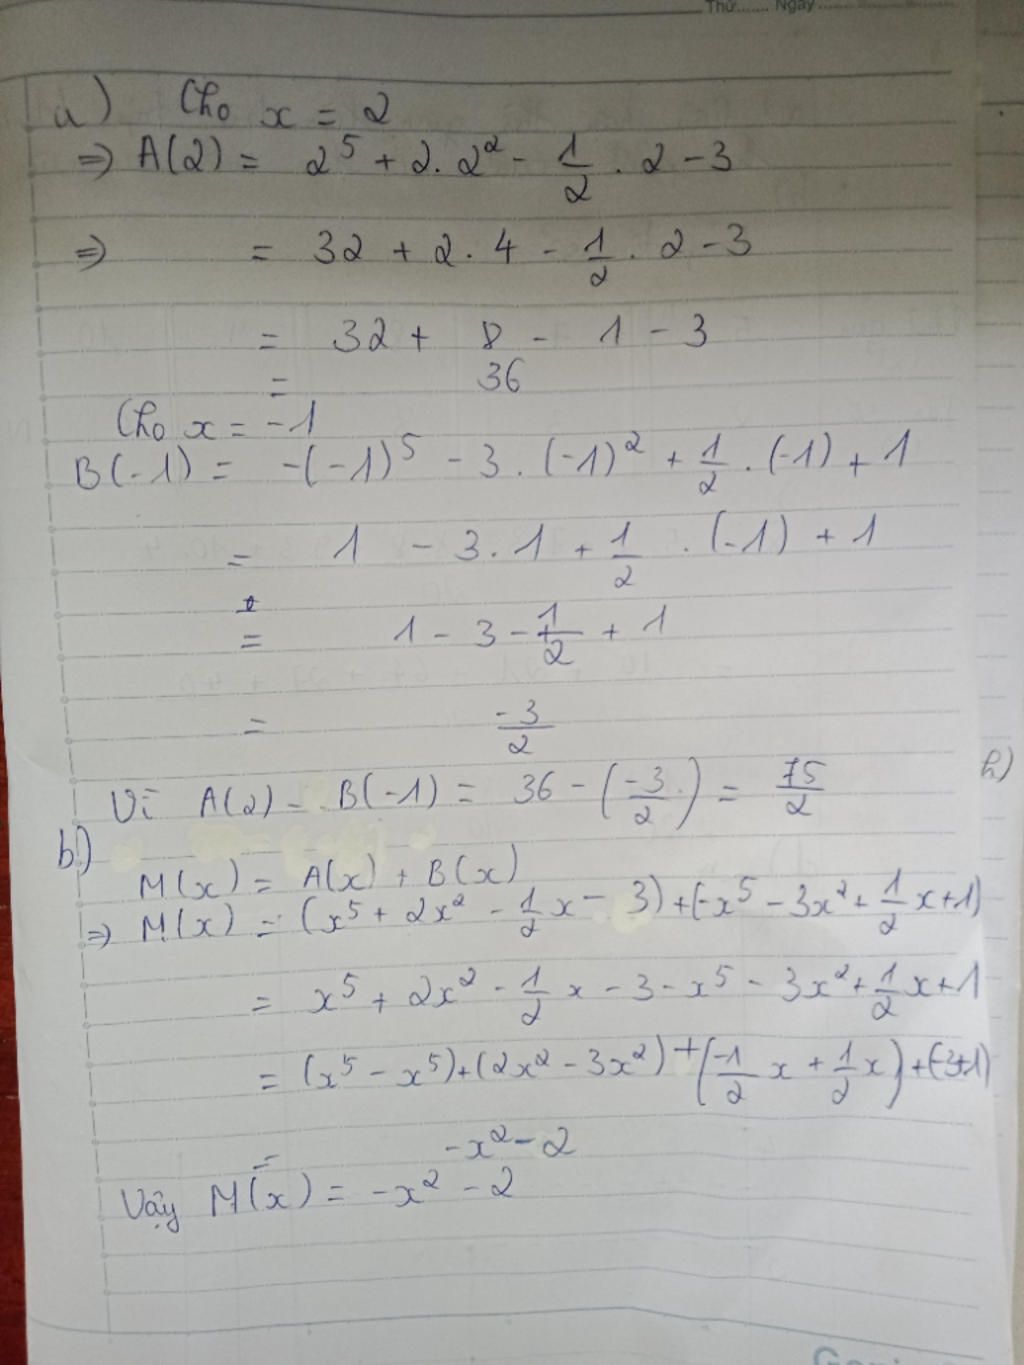 Thứ....... Ngày
a) Cho x = 2
⇒ A(2) = 2⁵ + 2. 2² - 1/2 . 2 - 3
⇒ = 32 + 2 . 4 - 1/2 . 2 - 3
= 32 + 8 - 1 - 3
= 36
Cho x = -1
B(-1) = -(-1)⁵ - 3 . (-1)² + 1/2 . (-1) + 1
= 1 - 3 . 1 + 1/2 . (-1) + 1
= 1 - 3 - 1/2 + 1
= -3/2
h)
Vì A(2) - B(-1) = 36 - (-3/2) = 75/2
b)
M(x) = A(x) + B(x)
⇒ M(x) = (x⁵ + 2x² - 1/2 x - 3) + (-x⁵ - 3x² + 1/2 x + 1)
= x⁵ + 2x² - 1/2 x - 3 - x⁵ - 3x² + 1/2 x + 1
= (x⁵ - x⁵) + (2x² - 3x²) + (-1/2 x + 1/2 x) + (-3+1)
= -x² - 2
Vậy M(x) = -x² - 2